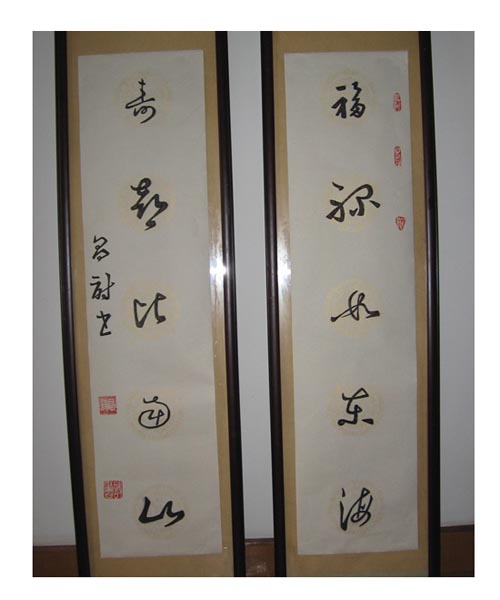 福禄如东海
寿比南山
书